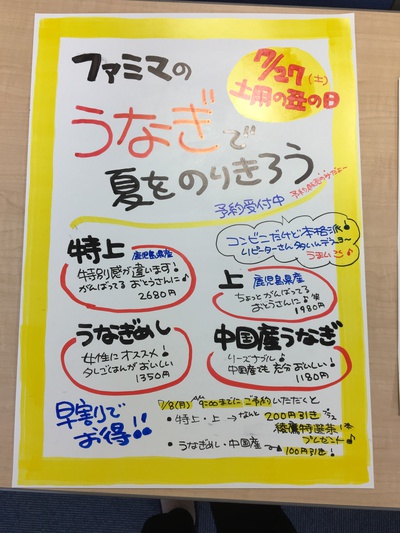 ファミマの
7/27(土)
土用の丑の日
うなぎで
夏をのりきろう
予約受付中
コンビニだけど本格派♪
リピーターさん多いんデスヨ〜
うまい♪
特上
鹿児島県産
特別感が違います!
がんばってるおとうさんに♪
2680円
上
鹿児島県産
ちょっとがんばってる
おとうさんに♪笑
1980円
うなぎめし
女性にオススメ!
タレごはんがおいしい
1350円
中国産うなぎ
リーズナブル♪
中国産でも充分おいしい!
1180円
早割で
お得!!
7/8(月) 9:00までにご予約いただくと
・特上・上→なんと200円引き
綾鷹特選茶1本
プレゼント♪
・うなぎめし・中国産
100円引き!